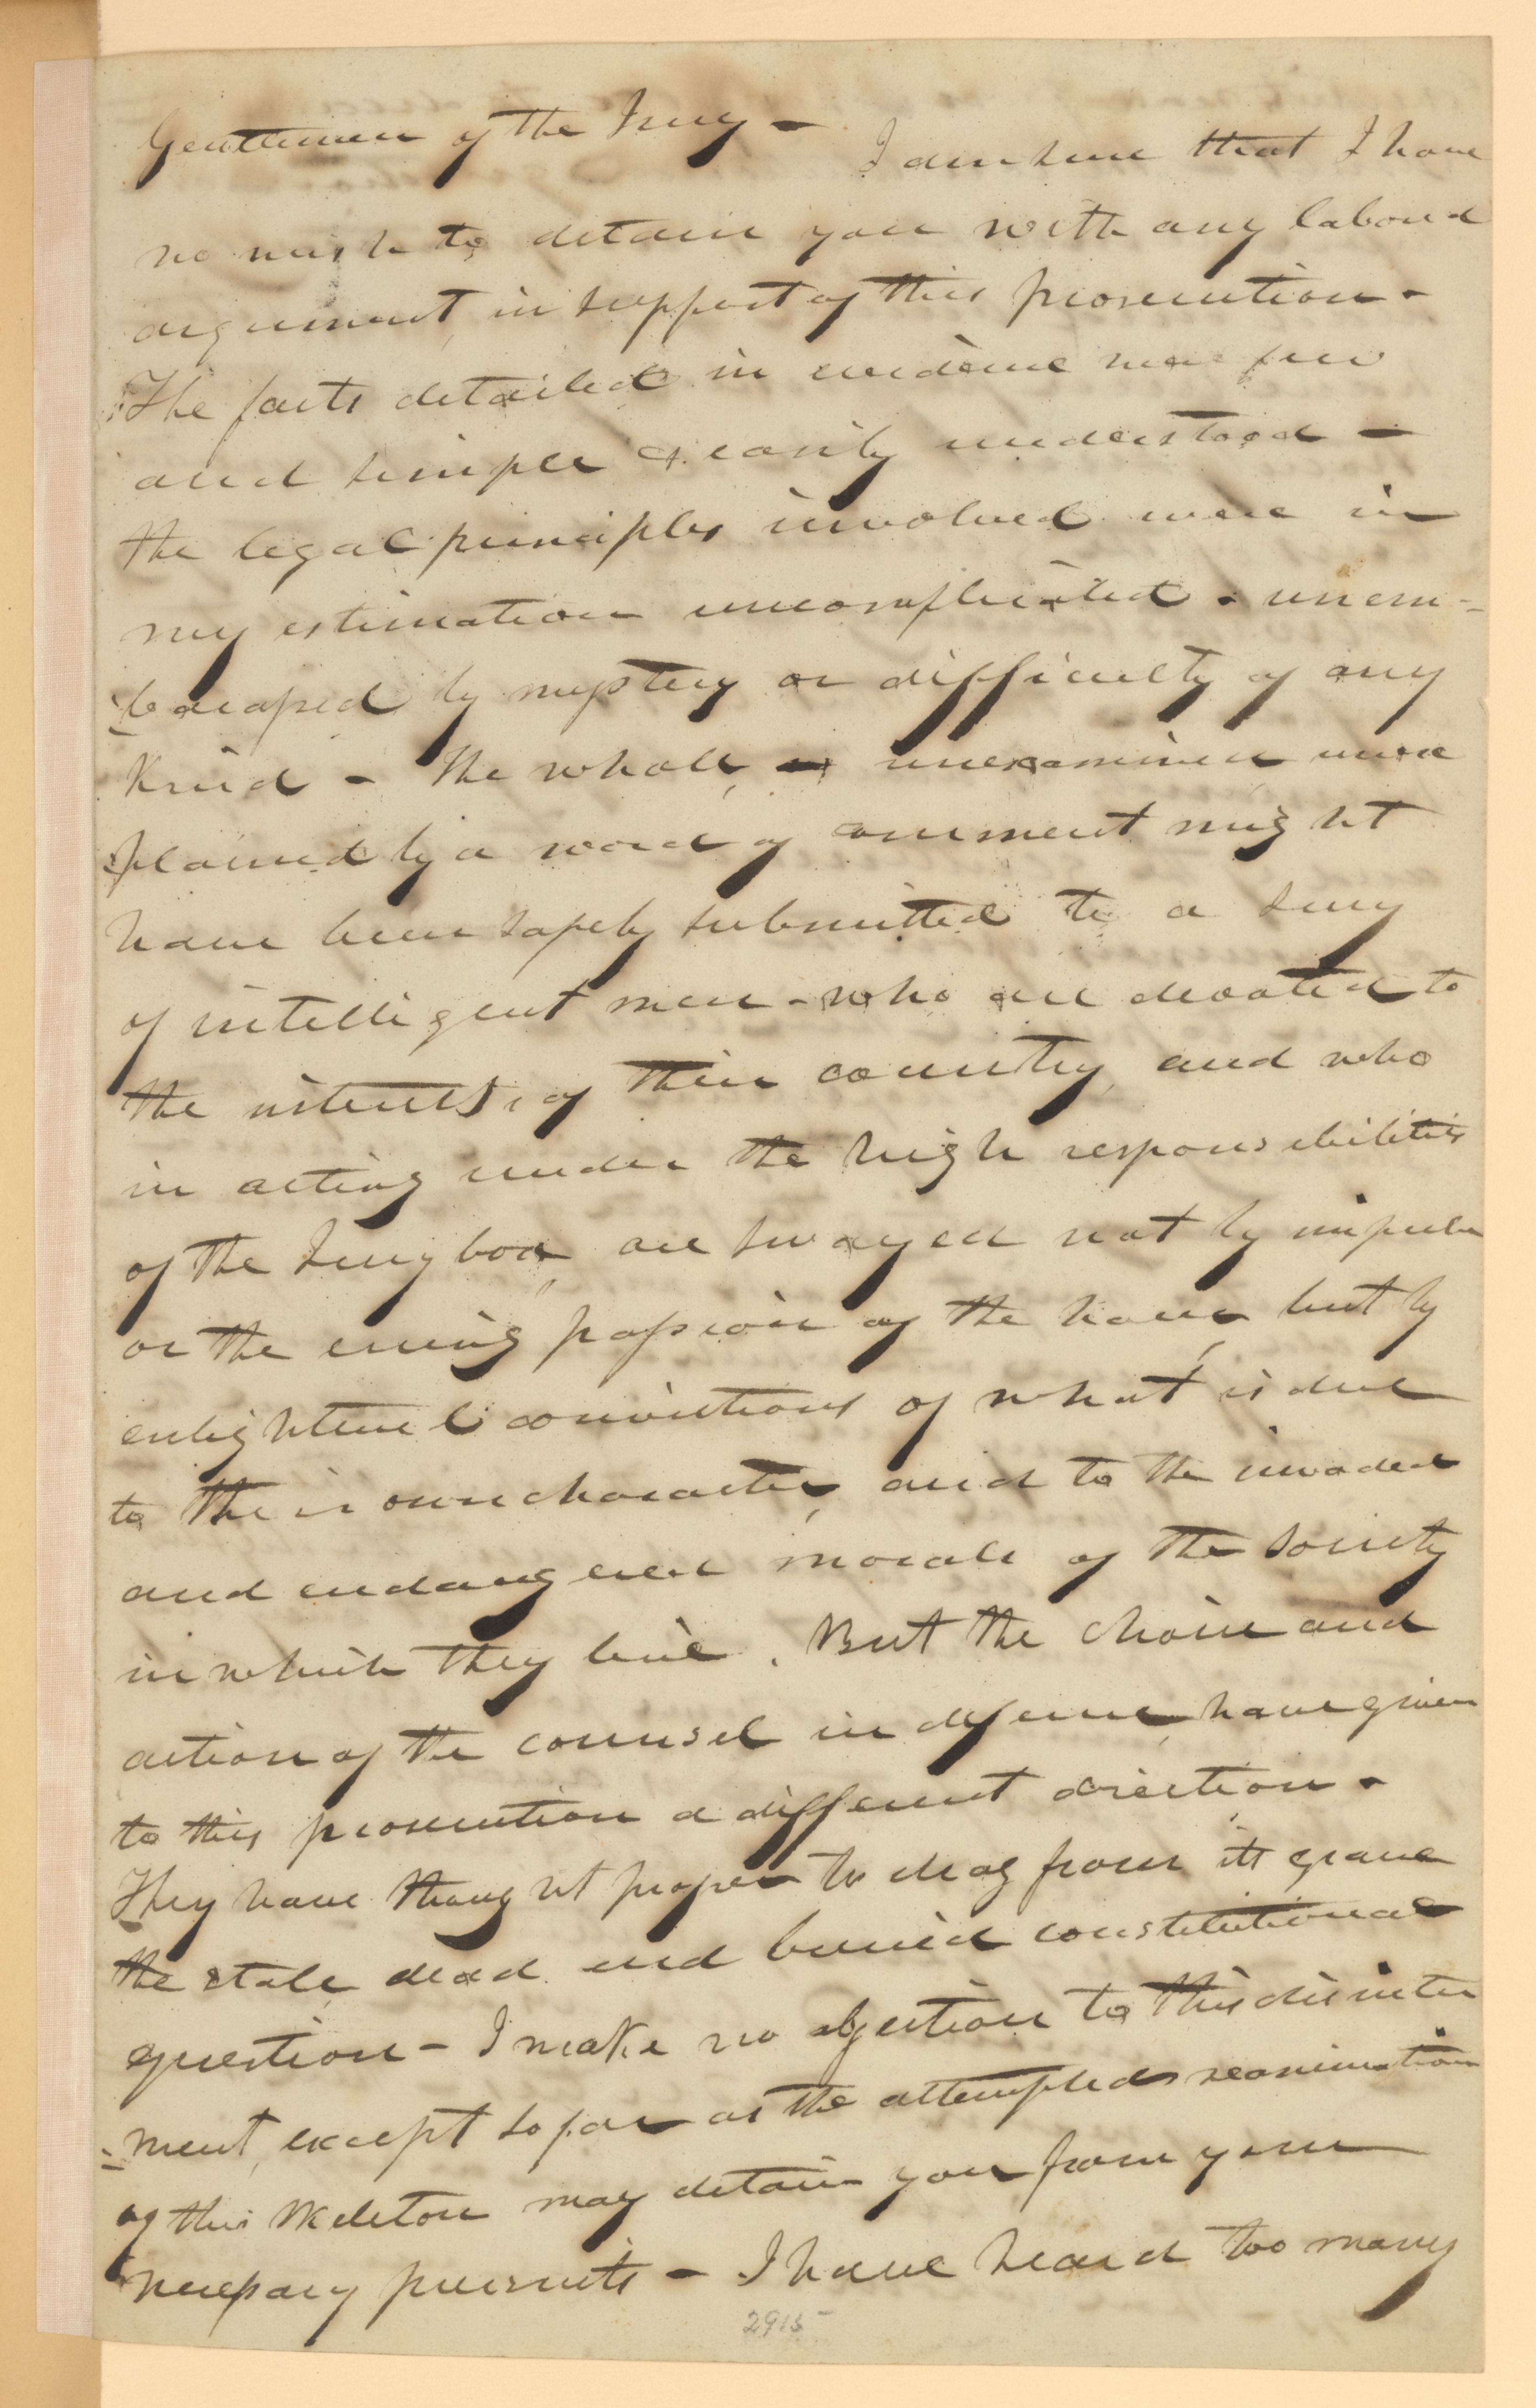 Gentlemen of the Jury - I am sure that I have
no wish to detain you with any labourd
argument, in support of this prosecution -
The facts detailed in evidence were few
and simple & easily understood -
the legal principles involved were in
my estimation uncomplicated - unem-
-barassed by mystery or difficulty of any
kind - The whole, unexamined unex
-plained by a word of comment might
have been safely submitted to a Jury
of intelligent men - who are devoted to
the interests, of their country, and who
in acting under the high responsibilities
of the Jury box, are swayed not by impulse
or the erring passion of the hour, but by
enlightened convictions of what is due
to their own character, and to the invaded
and endangered morals of the Society
in which they live. But the choice and
action of the counsel in defence, have given
to this prosecution a different direction -
They have thought proper to drag from its grave
the stale, dead and buried constitutional
question - I make no objection to this disinter
-ment, except so far as the attempted reanimation
of this skeleton may detain you from your
necessary pursuits - I have heard too many
2915